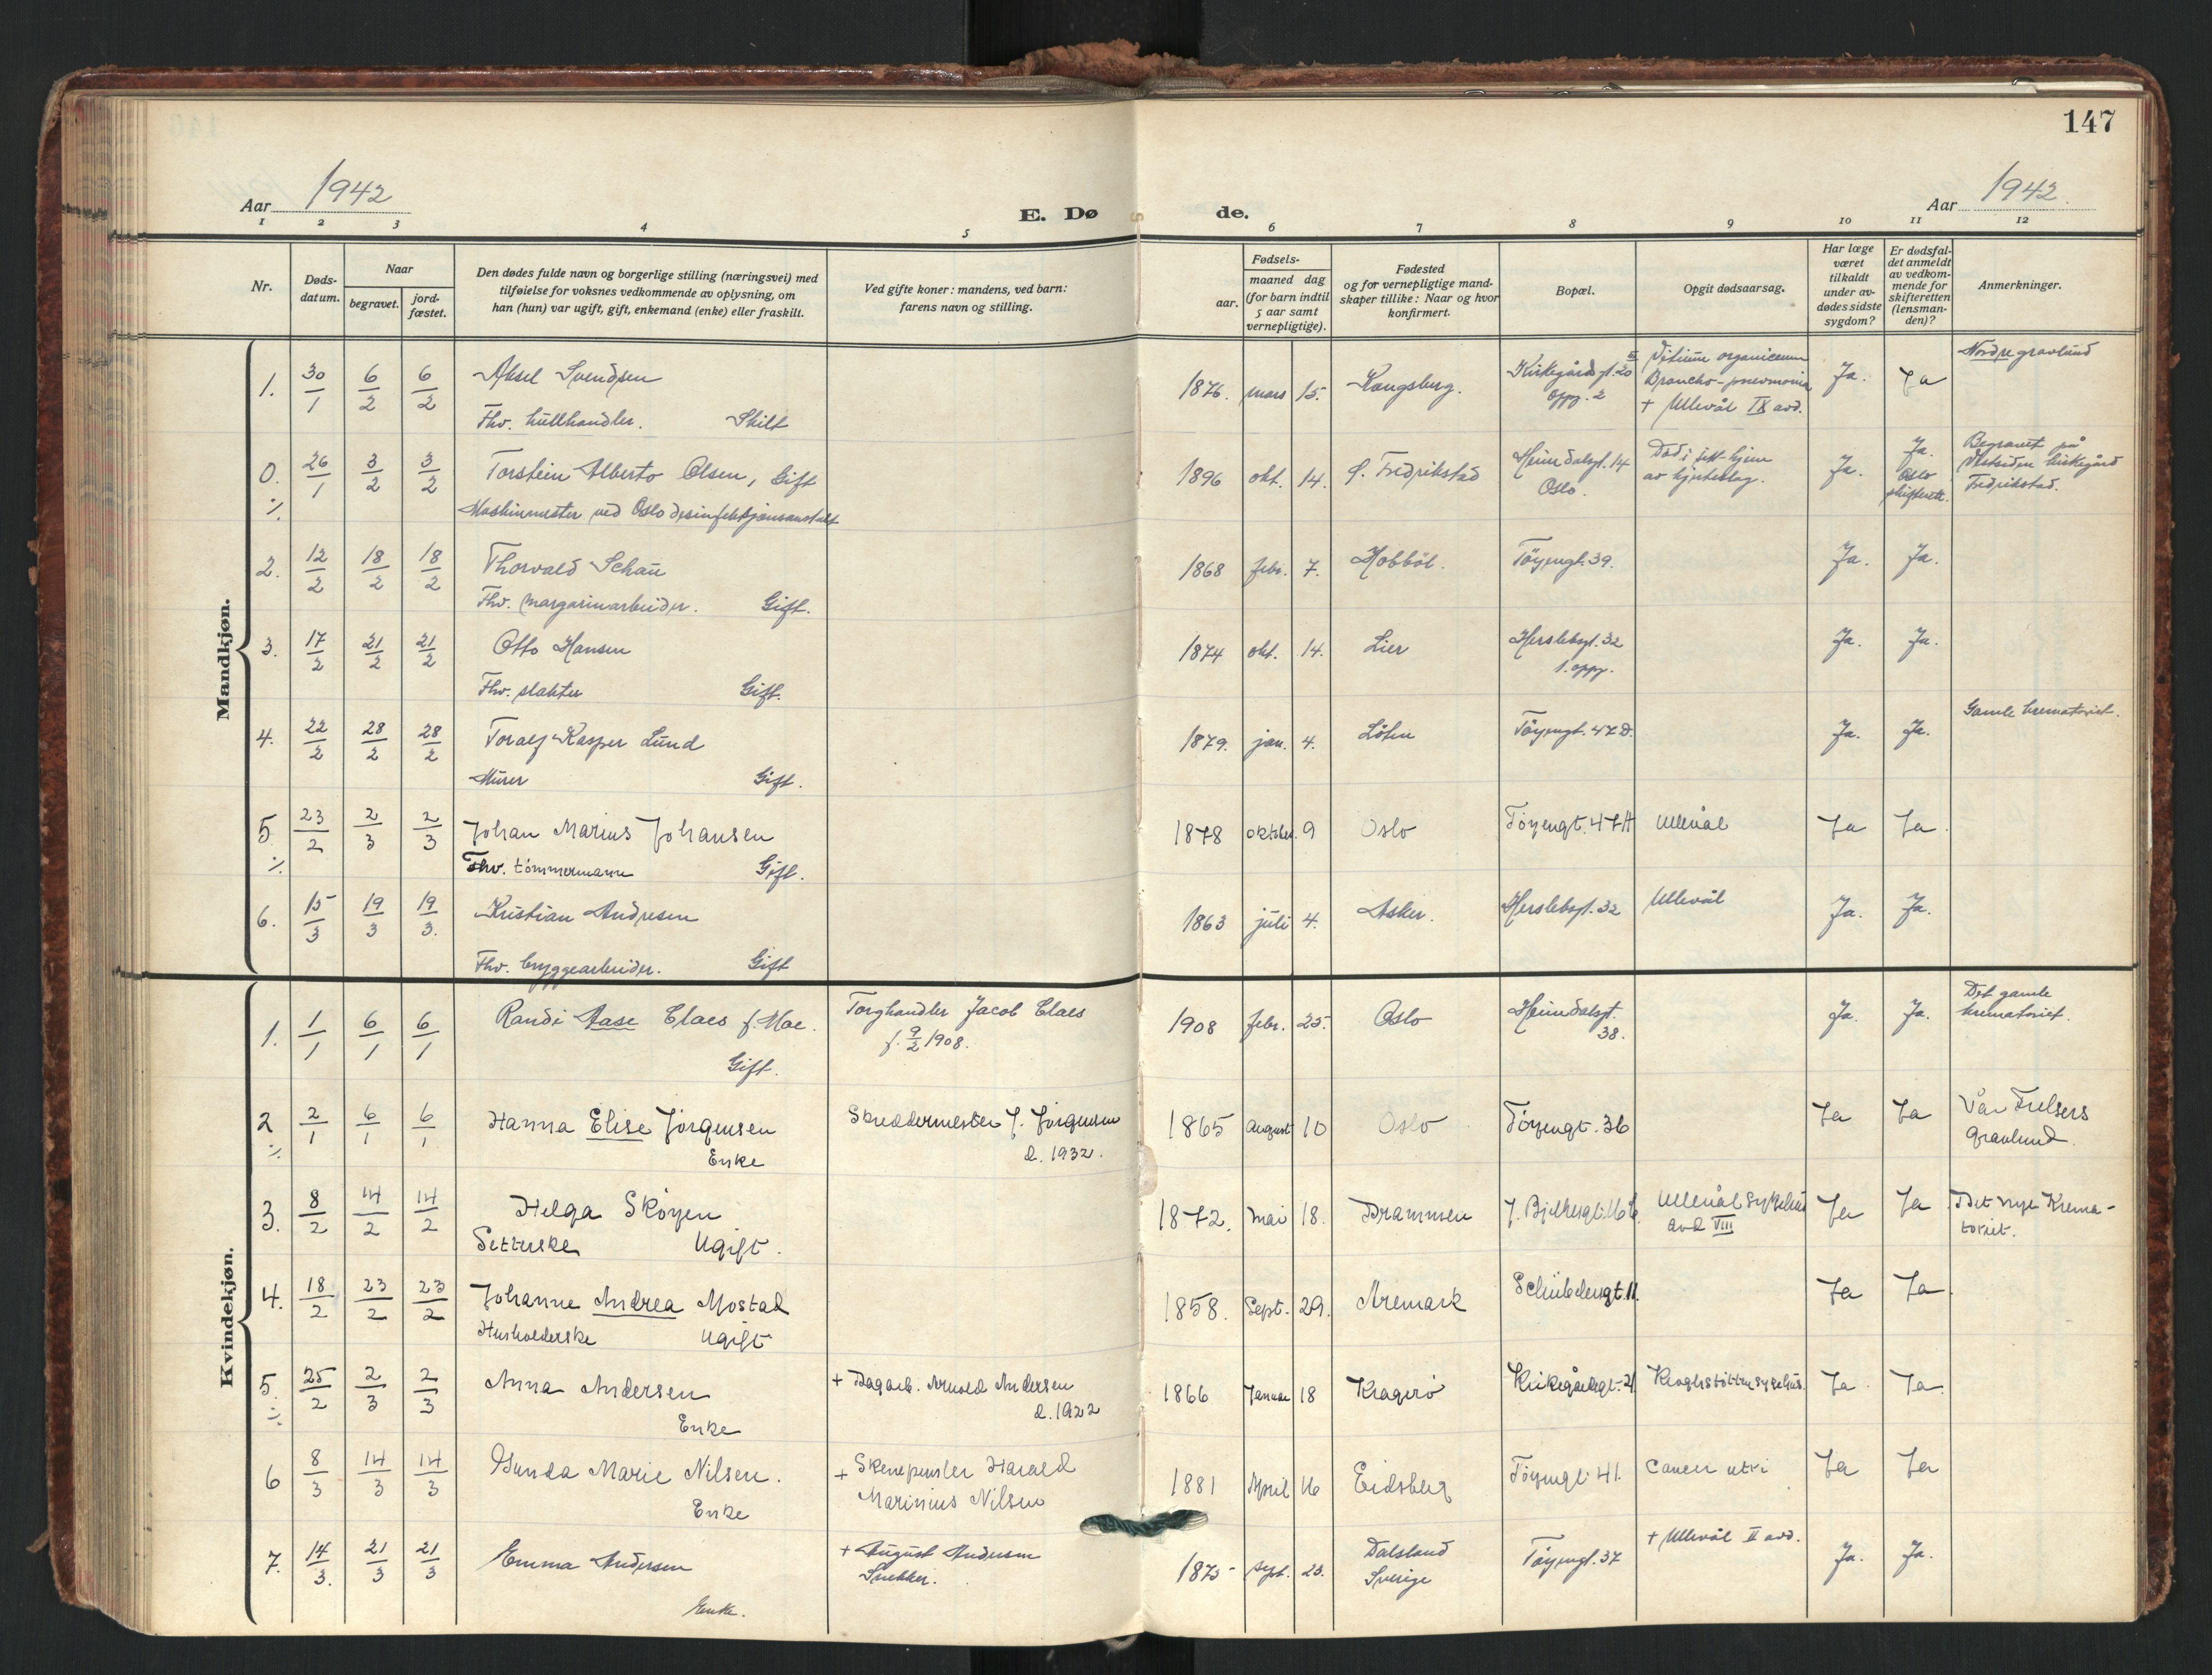 147
Aar 1942
E. Døde.
Aar 1942.
1 2 3 4 5 6 7 8 9 10 11 12
Nr.
Døds-
datum.
Naar
begravet.
jord-
fæstet.
Den dødes fulde navn og borgerlige stilling (næringsvei) med
tilføielse for voksnes vedkommende av oplysning, om
han (hun) var ugift, gift, enkemand (enke) eller fraskilt.
Ved gifte koner: mandens, ved barn:
farens navn og stilling.
Fødsels-
aar.
maaned dag
(for barn indtil
5 aar samt
vernepligtige).
Fødested
og for vernepligtige mand-
skaper tillike: Naar og hvor
konfirmert.
Bopæl.
Opgit dødsaarsag.
Har læge
været
tilkaldt
under av-
dødes sidste
sygdom?
Er dødsfal-
det anmeldt
av vedkom-
mende for
skifteretten
(lensman-
den)?
Anmerkninger.
Mandkjøn.
1. 30/1 6/2 6/2 Aksel Svendsen 1876. mars 15. Kongsberg. Kirkegårdsgt. 20 III Vitium organicum Ja. Ja Nordre gravlund
oppg. 2 Broncho-pneumonia
Fhv. kullhandler. Skilt + Ullevål IX avd.
0. 26/1 3/2 3/2 Torstein Alberto Olsen, Gift 1896 okt. 14. Ø. Fredrikstad Heimdalsgt. 14 Død i sitt hjem Ja. Ja. Begravet på
% Maskinmester ved Oslo desinfeksjonsanstalt Oslo. av hjerteslag. Oslo Vestsiden kirkegård
skifterett. Fredrikstad.
2. 12/2 18/2 18/2 Thorvald Schau 1868 febr. 7. Hobböl. Töyengt. 39. Ja. Ja.
Fhv. margarinarbeider. Gift.
3. 17/2 21/2 21/2 Otto Hansen 1874 okt. 14. Lier Herslebsgt. 32 Ja. Ja.
1. oppg.
Fhv. slakter Gift.
4. 22/2 28/2 28/2 Toralf Kasper Lund 1879. jan. 4. Löten Töyengt. 47D. Ja. Ja. Gamle krematoriet.
Murer Gift.
5 23/2 2/3 2/3 Johan Marius Johansen 1878 oktober. 9 Oslo Töyengt. 47H Ullevål Ja Ja.
% Fhv. tömmermann Gift.
6. 15/3 19/3 19/3. Kristian Andresen 1863 juli 4. Asker. Herslebsgt. 32 Ullevål Ja. Ja.
Fhv. bryggearbeider. Gift
Kvindekjøn.
1. 1/1 6/1 6/1 Randi Aase Claes f. Moe. Torghandler Jacob Claes 1908 febr. 25. Oslo Heimdalsgt. Ja. Ja. Det gamle
f. 9/2 1908. 38. krematoriet.
Gift.
2 2/1 6/1 6/1 Hanna Elise Jörgensen Skreddermester J. Jörgensen 1865 August 10 Oslo Töyengt. 36 Ja Ja Vår Frelsers
% Enke d. 1932. Gravlund.
3. 8/2 14/2 14/2 Helga Sköyen 1872. Mai 18. Drammen Ullevål Sykehus Ja Ja Det nye Krema-
Setterske Ugift. avd VIII toriet.
4. 18/2 23/2 23/2 Johanne Andrea Mostad 1858. Sept. 29. Aremark Schübelersgt. 11. Ja Ja.
Husholderske Ugift
5. 25/2 2/3 2/3 Anna Andersen + Dagarb. Arnold Andersen 1866 Januar 18 Kragerö Kirkegårdsgt. 21. Ja. Ja.
% Enke d. 1922
6 8/3 14/3 14/3 Gunda Marie Nilsen. + Harald 1881 April 16 Eidsberg Töyengt. 41. Cancer uteri Ja Ja
Enke Marinius Nilsen
7. 14/3. 21/3 21/3 Emma Andersen + August Andersen 1875 Sept. 23. Dalsland Töyengt. 37 + Ullevål II avd. Ja. Ja.
Snekker. Sverige
Enke.